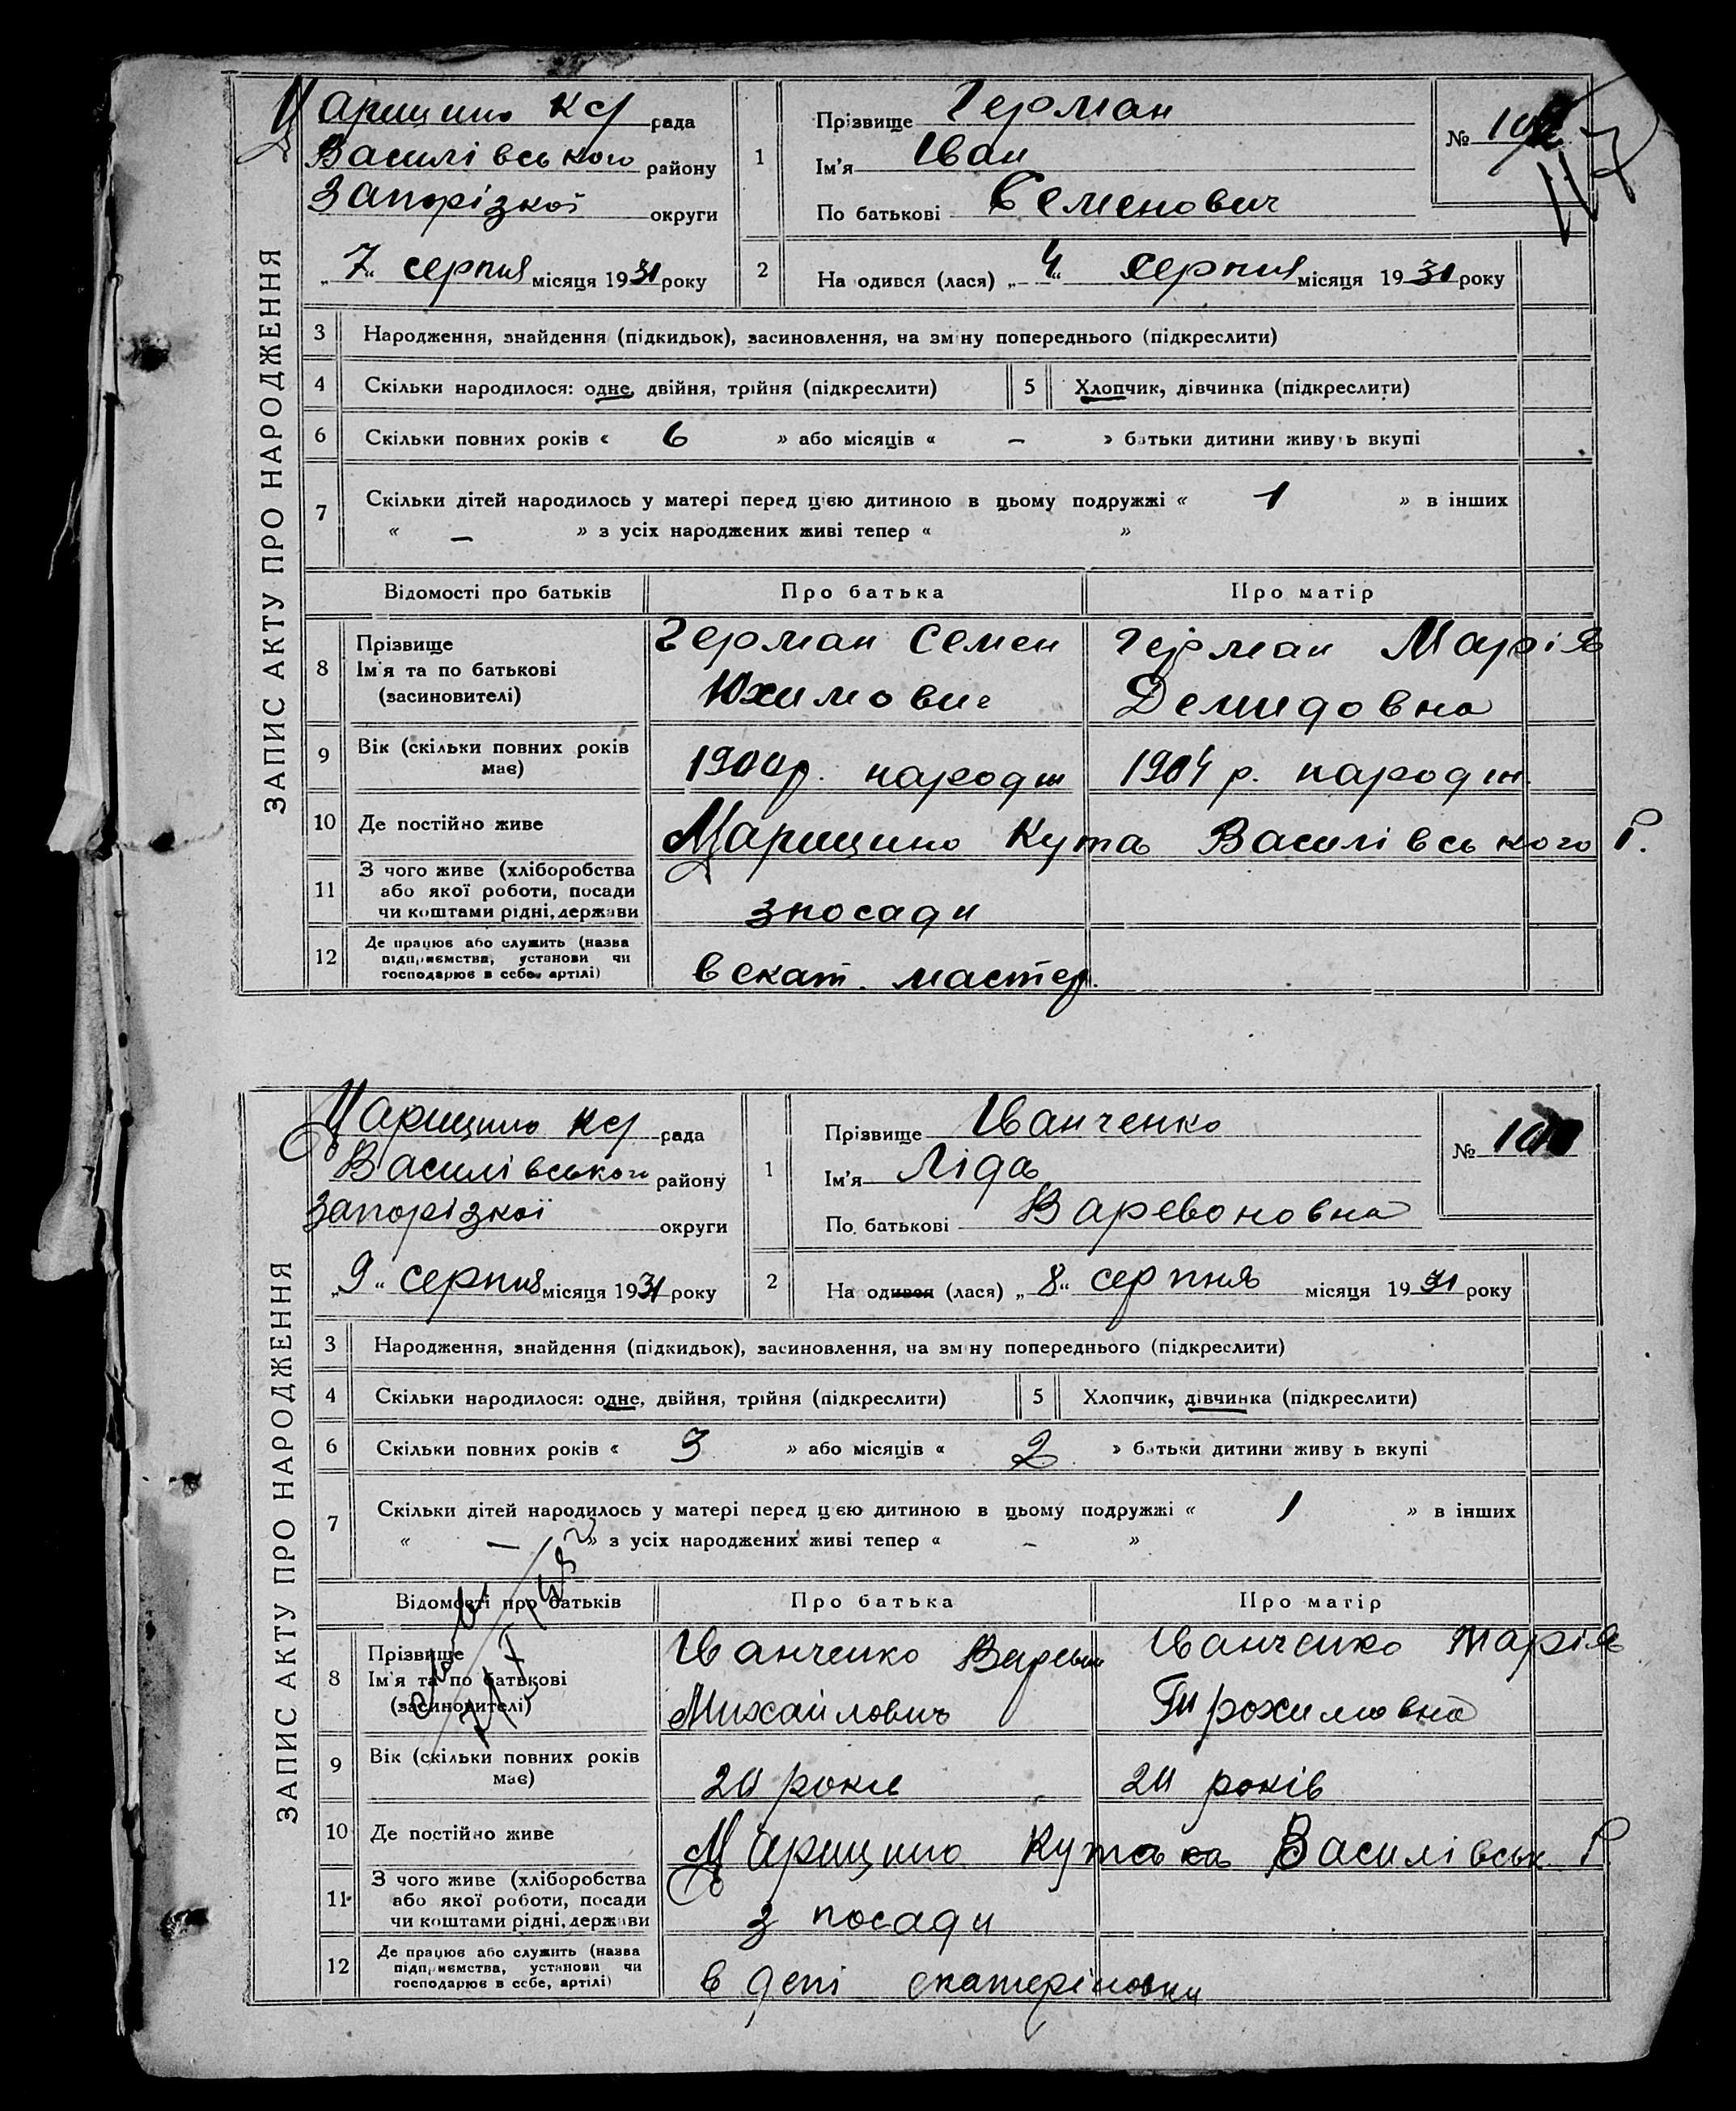 ЗАПИС АКТУ ПРО НАРОДЖЕННЯ
Царицино Кс/ рада
Василівського району
Запорізкої округи
„7“ серпня місяця 1931 року
1
Прізвище Герман
Ім'я Іван
По батькові Семенович
№
2
На одився (лася) „4“ серпня місяця 1931 року
3 Народження, знайдення (підкидьок), засиновлення, на зм ну попереднього (підкреслити)
4 Скільки народилося: одне, двійня, трійня (підкреслити) 5 Хлопчик, дівчинка (підкреслити)
6 Скільки повних років « 6 » або місяців « – » батьки дитини живуть вкупі
7 Скільки дітей народилось у матері перед цією дитиною в цьому подружжі « 1 » в інших
« – » з усіх народжених живі тепер « »
Відомості про батьків Про батька Про матір
8 Прізвище Ім'я та по батькові (засиновителі)
Герман Семен Юхимович
Герман Марія Демидовна
9 Вік (скільки повних років має)
1900р. народж
1904 р. народж.
10 Де постійно живе Царицино Кута Василівського Р.
11 З чого живе (хліборобства або якої роботи, посади чи коштами рідні, держави
з посади
12 Де працює або служить (назва підприємства, установи чи господарює в себе, артілі)
в екат. мастер.
ЗАПИС АКТУ ПРО НАРОДЖЕННЯ
Царицино Кс/ рада
Василівського району
Запорізкої округи
„9“ серпня місяця 1931 року
1
Прізвище Іванченко
Ім'я Ліда
По батькові Варевоновна
№
2
На одився (лася) „8“ серпня місяця 1931 року
3 Народження, знайдення (підкидьок), засиновлення, на зм ну попереднього (підкреслити)
4 Скільки народилося: одне, двійня, трійня (підкреслити) 5 Хлопчик, дівчинка (підкреслити)
6 Скільки повних років « 3 » або місяців « 2 » батьки дитини живу ь вкупі
7 Скільки дітей народилось у матері перед цією дитиною в цьому подружжі « 1 » в інших
« – » з усіх народжених живі тепер « – »
Відомості про батьків Про батька Про матір
8 Прізвище Ім'я та по батькові (засиновителі)
Іванченко
Михайлович
Іванченко Марія
Трохимовна
9 Вік (скільки повних років має)
років
років
10 Де постійно живе Царицино Кута Василівськ Р.
11 З чого живе (хліборобства або якої роботи, посади чи коштами рідні, держави
з посади
12 Де працює або служить (назва підприємства, установи чи господарює в себе, артілі)
в депі екатеріновки